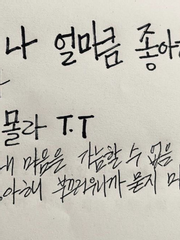 나 얼마큼 좋아
몰라 T.T
내 마음은 가늠할 수 없음
부끄러우니까 묻지